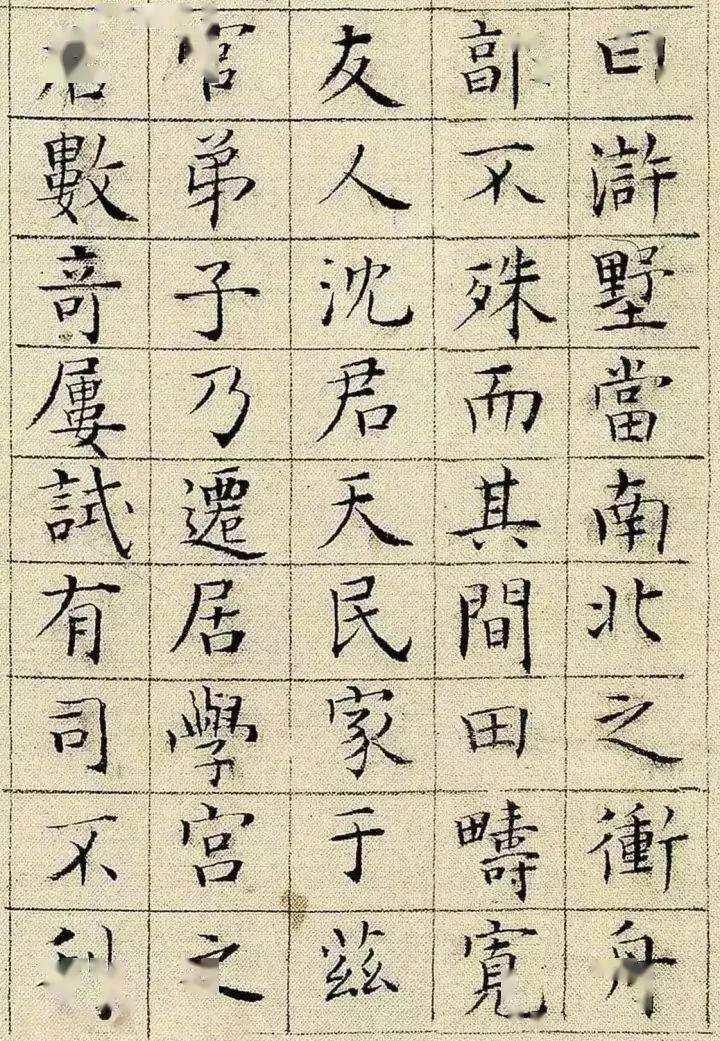 曰滸墅當南北之衝舟
不殊而其間田疇寬
友人沈君天民家于茲
官弟子乃遷居學宮之
數奇屢試有司不利